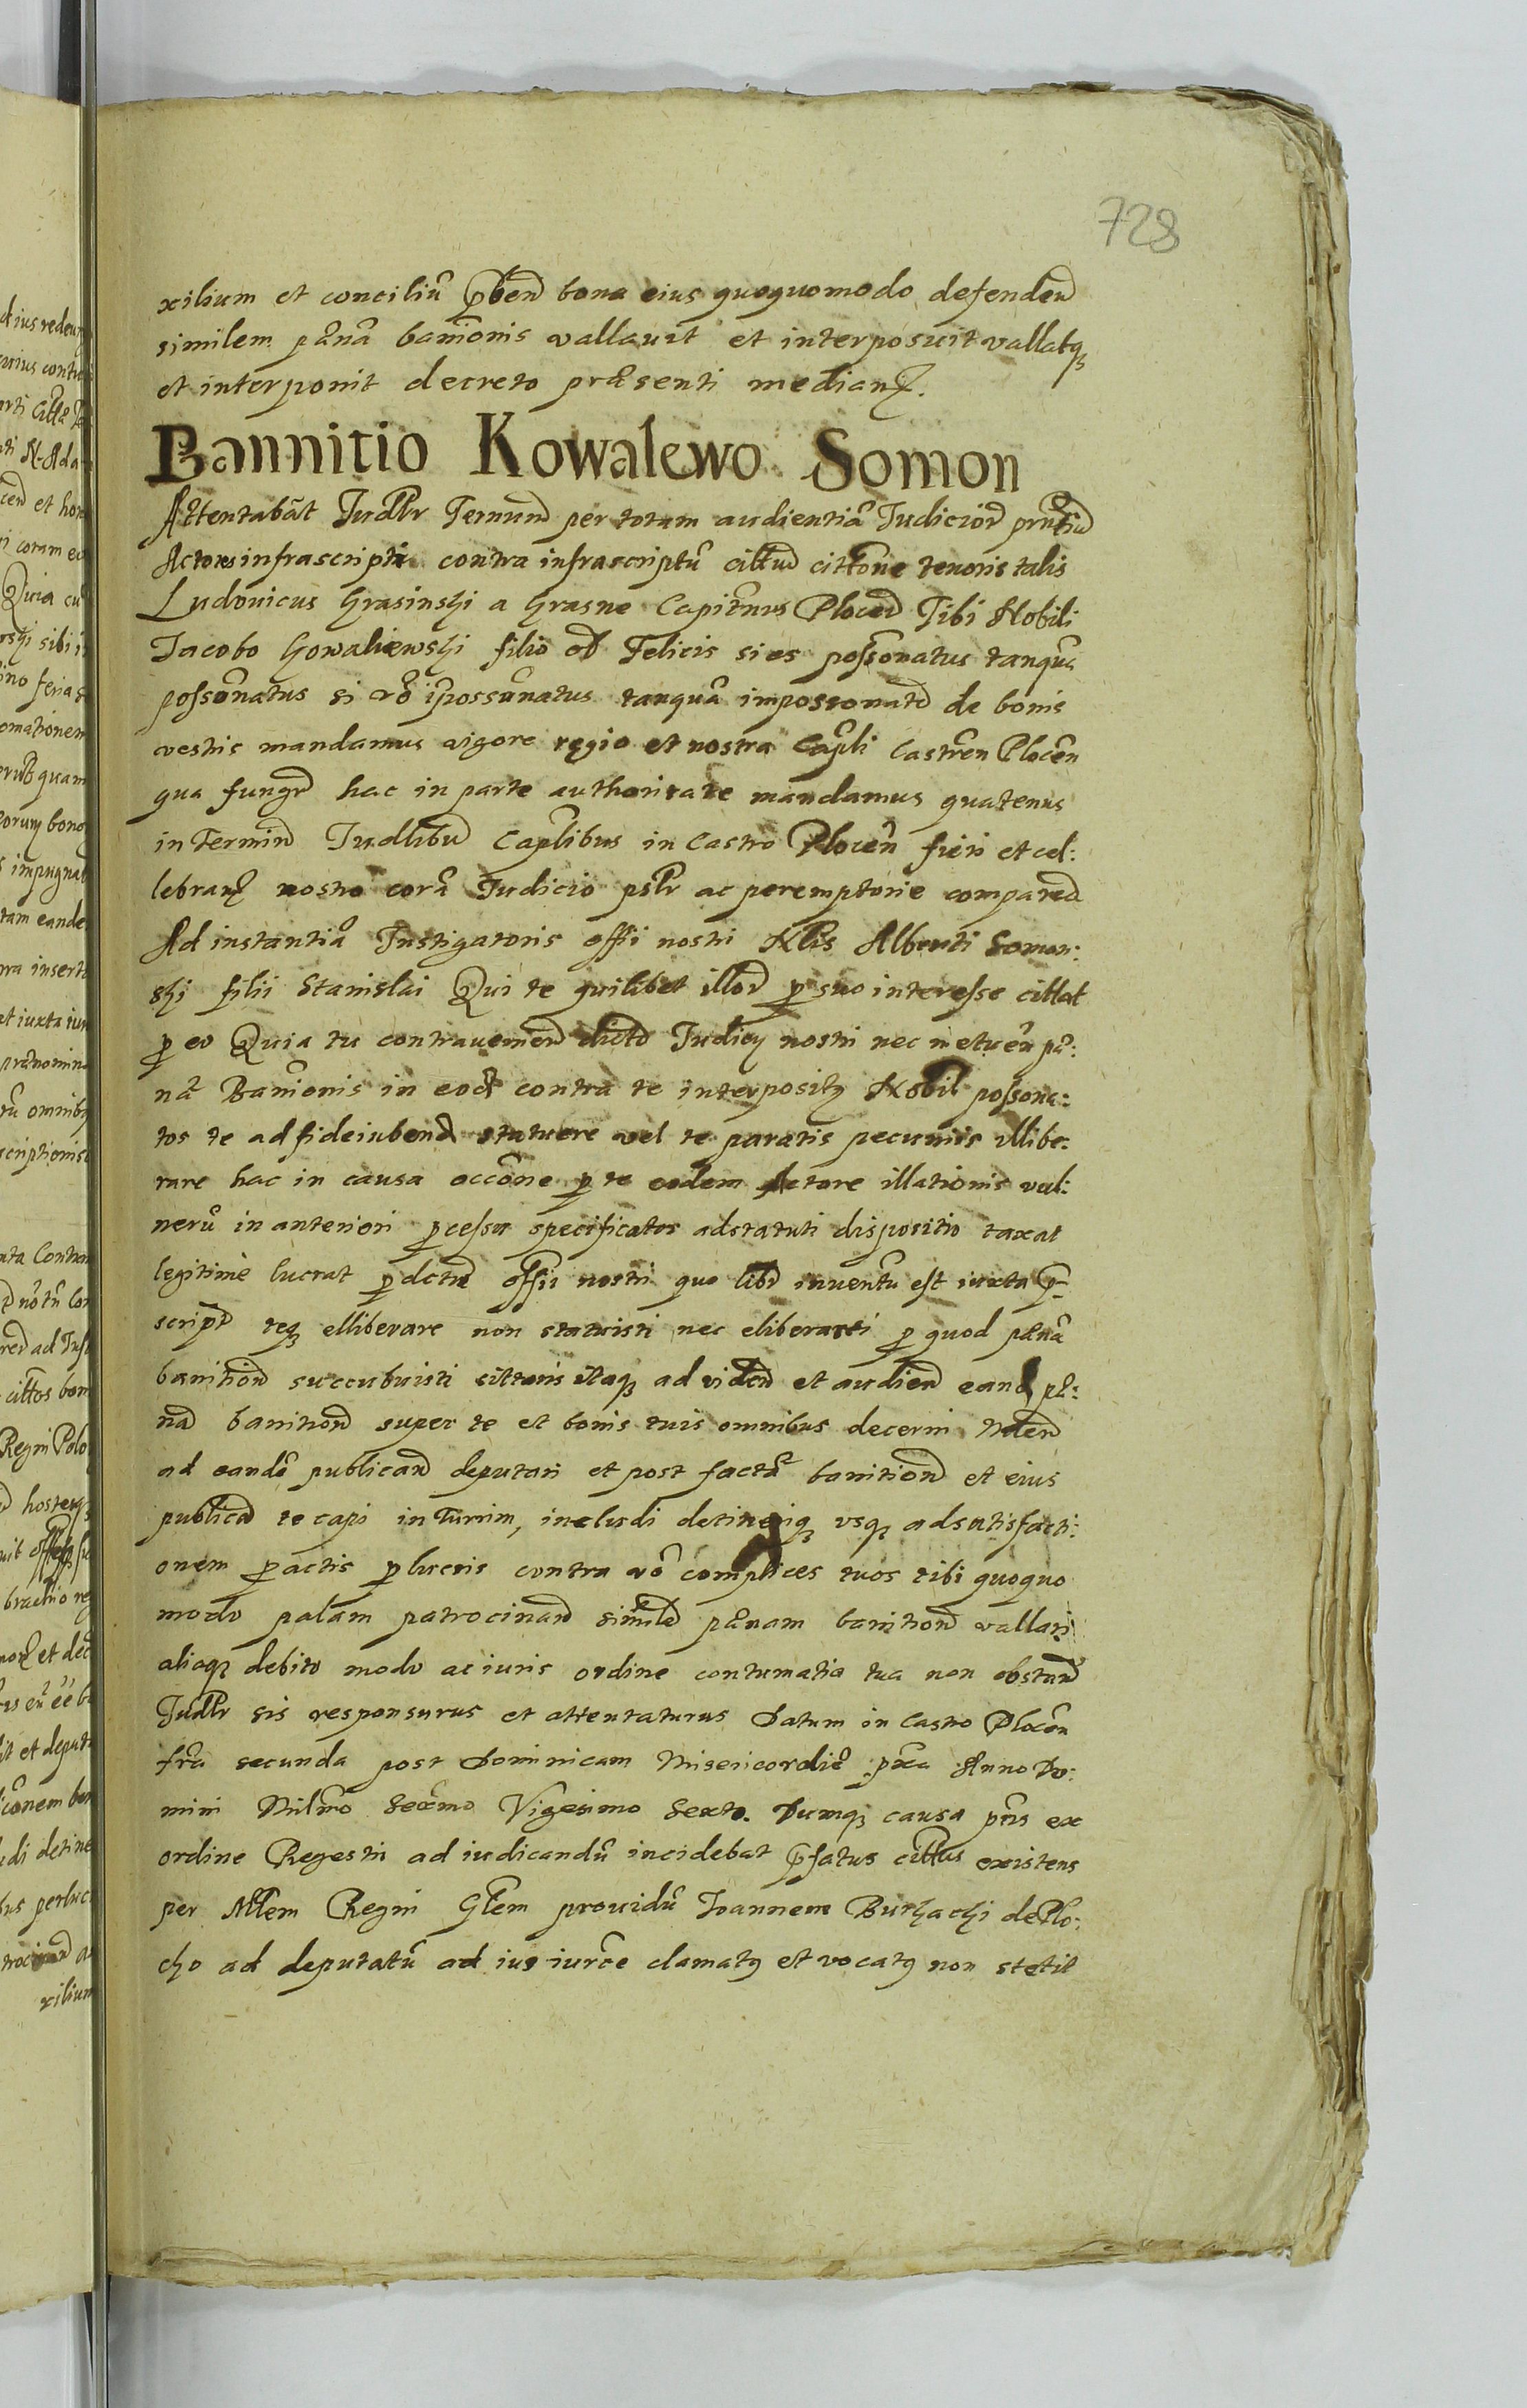 728
xilium et conciliũ p̃bend bona eius quoquomodo defendend
similem pænã banionis vallavit et interposuit vallatq3
et interponit decreto præsenti median̄
Bannitio Kowalewo Somon
Attentabãt Judlr Terminũ per totam audientiã Judiciorũ pñtiũ
Actores infrascripti contra infrascriptũ cittũ cittõne tenoris talis
Ludovicus Krasinski a Krasne Capitneus Plocen Tibi Nobili
Jacobo Kowaliewski filio ol Felicis si es possõnatus tanquã
possõnatus si vô ĩpossõnatus tanquã impossonatũ de bonis
vestis mandamus vigore regio et nostra Capli Castren Plocẽn
qua fungr hac in parte authoritate mandamus quatenus
in Termin Judlibũ Caplibus in Castro Plocẽn fieri et cel:
lebran nostro corã Judicio pslr ac peremptorie compared
Ad instantiã Instigatoris offi nostri Nlis Alberti Somon:
ski filii Stanislai Qui te quilibet illor p suo interesse cittat
p eo Quia tu contravemend dicto Judicy nostri nec metuẽn pæ:
nã Banionis in eod contra te interposity Nobil possona:
tos te ad fideiubend statuere vel te paratis pecuniis illibe:
rare hac in causa occõne p te eodem Actore illationis vul:
nerũ in anteriori pcessu specificator ad statuti dispositio taxat
legitimè lucrat pdctũ offii nostri quo libr inventũ est iuxta p̃:
script teq3 elliberare non statuisti nec eliberasti p quod pænã
banitionũ succubuisti cittaris itaq3 ad videnđ et audiend eand pæ:
nã banitionũ super te et bonis tuis omnibus decerni Mlem
ad eandẽ publicand deputari et post factã banitionũ et eius
publicõ te capi in Turrim, includi detineriq3 usq3 ad satisfacti:
onem p actis p lucris contra vô complices tuos tibi quoquo
modo palam patrocinand similẽ pænam banitionũ vallari
aliaq3 debito modo ac iuris ordine contumatia tua non obstanđ
Judlr sis responsurus et attentaturus Datum in Castro Plocẽn
fra secunda post Dominicam Misericordiẽ pxa Anno Do:
mini Millmo Sexmo Vigesimo Sexto. Dumq3 causa pñs ex
ordine Regestri ad iudicandũ incidebat p̃fatus cittus existens
per Mlem Regni Glem providũ Joannem Burhachi de Plo:
cko ad deputatũ ad ius iurẽe clamatq3 et vocatq3 non stetit